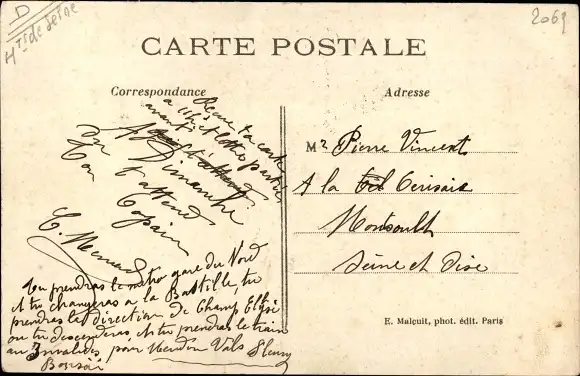 D
Hts de Seine
2069
CARTE POSTALE
Correspondance
Adresse
Reçue ta carte
a 11h et
avant
A Dimanche
on t'attend
Ton Copain
Mr Pierre Vincent
A la Cerisaie
Montsoult
Seine et Oise
Tu prendras le métro gare du Nord
et tu changeras a la Bastille, tu
prendras la direction de Champ Elysé
ou tu descenderas et tu prendras le train
au Invalides pour Meudon Vals Fleury
Bonsoir
E. Malcuit, phot. édit. Paris